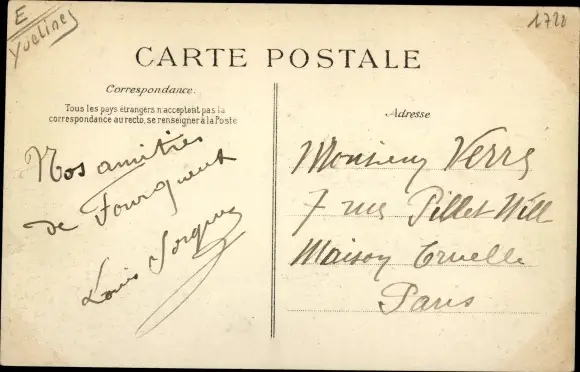 E
Yvelines
1720
CARTE POSTALE
Correspondance.
Tous les pays étrangers n'acceptent pas la
correspondance au recto, se renseigner à la Poste
Adresse
Nos amitiés
de Fourqueux
Louis
Monsieur Verré
7 rue Pillet Will
Maison Cruelle
Paris